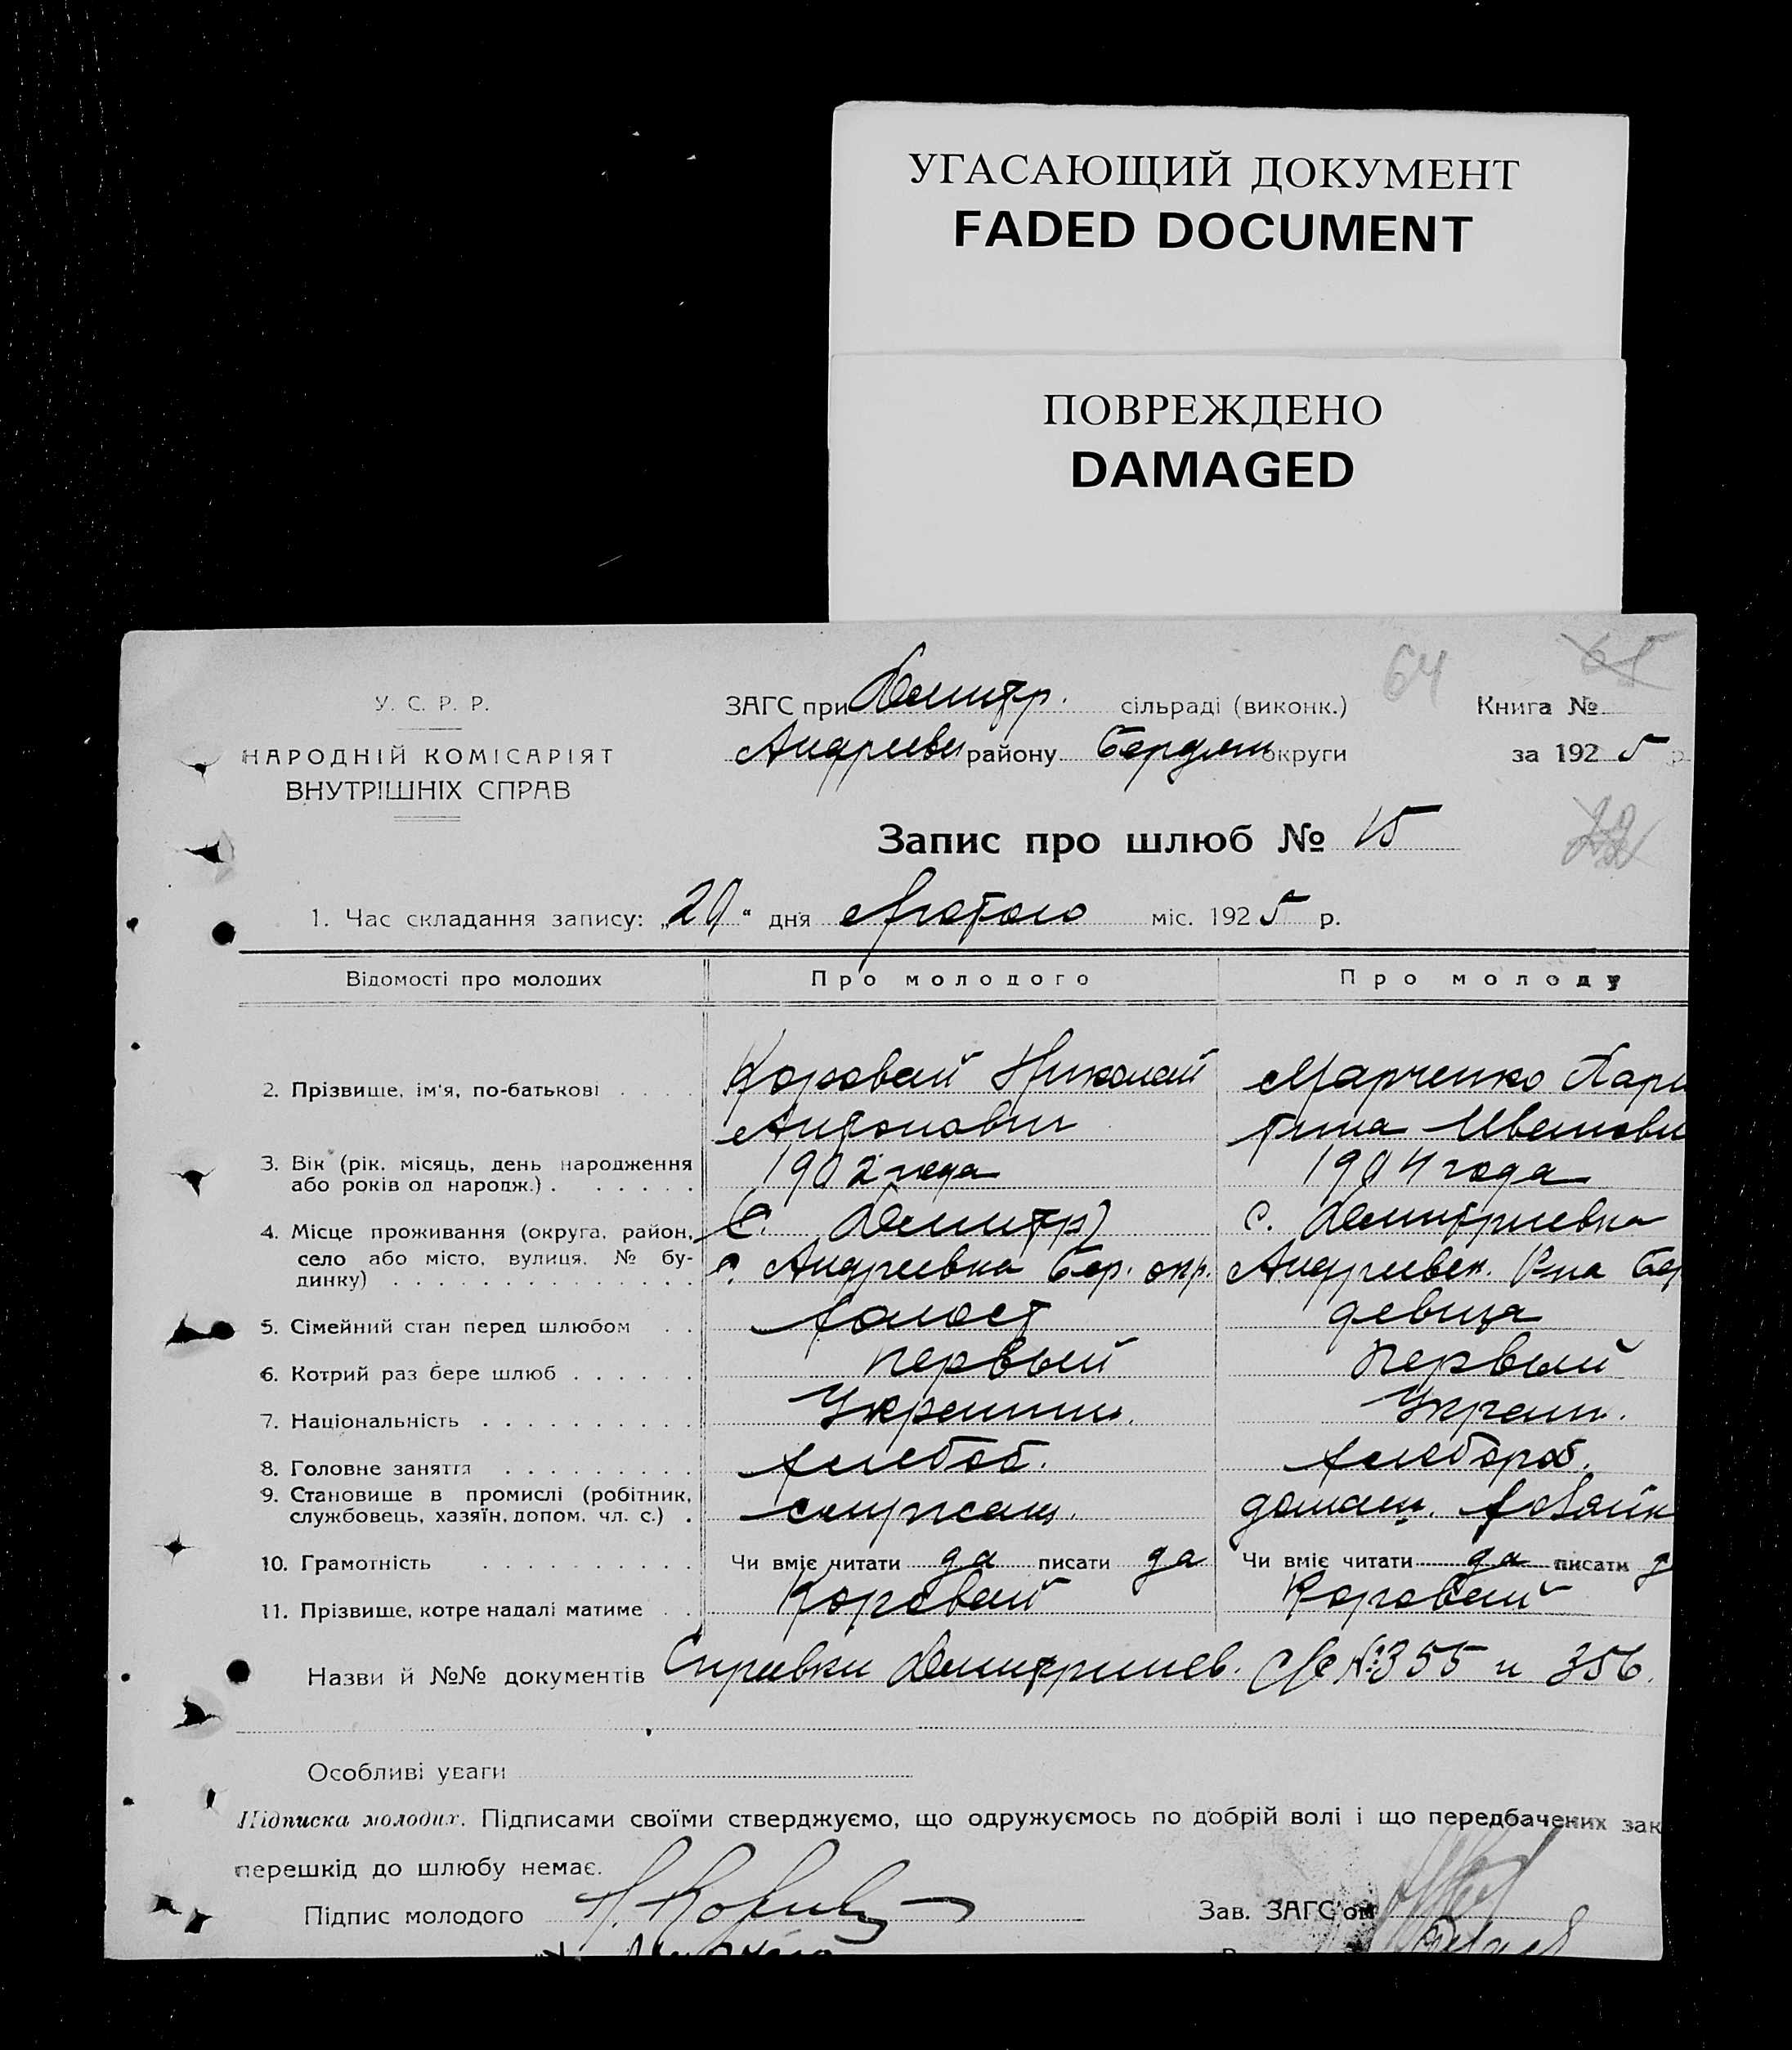 УГАСАЮЩИЙ ДОКУМЕНТ
FADED DOCUMENT
ПОВРЕЖДЕНО
DAMAGED
64
У. С. Р. Р.
НАРОДНІЙ КОМІСАРІЯТ
ВНУТРІШНІХ СПРАВ
ЗАГС при Дмитр. сільраді (виконк.)
Книга №
Андреевс району Бердян округи
за 1925 р
Запис про шлюб № 15
1. Час складання запису: „20“ дня Лютого міс. 1925 р.
Відомості про молодих Про молодого Про молоду
2. Прізвище, ім'я, по-батькові . . . . Коровай Николай Марченко Пара
Антонович тина Иванови
3. Вік (рік, місяць, день народження
або років од народж.) . . . . . . 1902 года 1904 года
4. Місце проживання (округа, район, С. Дмитр) с. Димитриевка
село або місто, вулиця, № бу-
динку) . . . . . . . . . . . . . . Андреевка Бер. окр. Андреевск. Р-на Бер
5. Сімейний стан перед шлюбом . . холост девица
6. Котрий раз бере шлюб . . . . . . первый первый
7. Національність . . . . . . . . . . Украинец. Украин.
8. Головне заняття . . . . . . . . . хлебоб. хлебороб.
9. Становище в промислі (робітник,
службовець, хазяїн, допом. чл. с.) . служащ. домашн. хозяйк
10. Грамотність . . . . . . . . . . Чи вміє читати да писати да Чи вміє читати да писати д
11. Прізвище, котре надалі матиме . . Коровай Коровай
Назви й №№ документів Справки Димитриев. С/С №355 и 356.
Особливі уваги
Підписка молодих. Підписами своїми стверджуємо, що одружуємось по добрій волі і що передбачених зак
перешкід до шлюбу немає.
Підпис молодого Н. Коровай
Зав. ЗАГС'ом